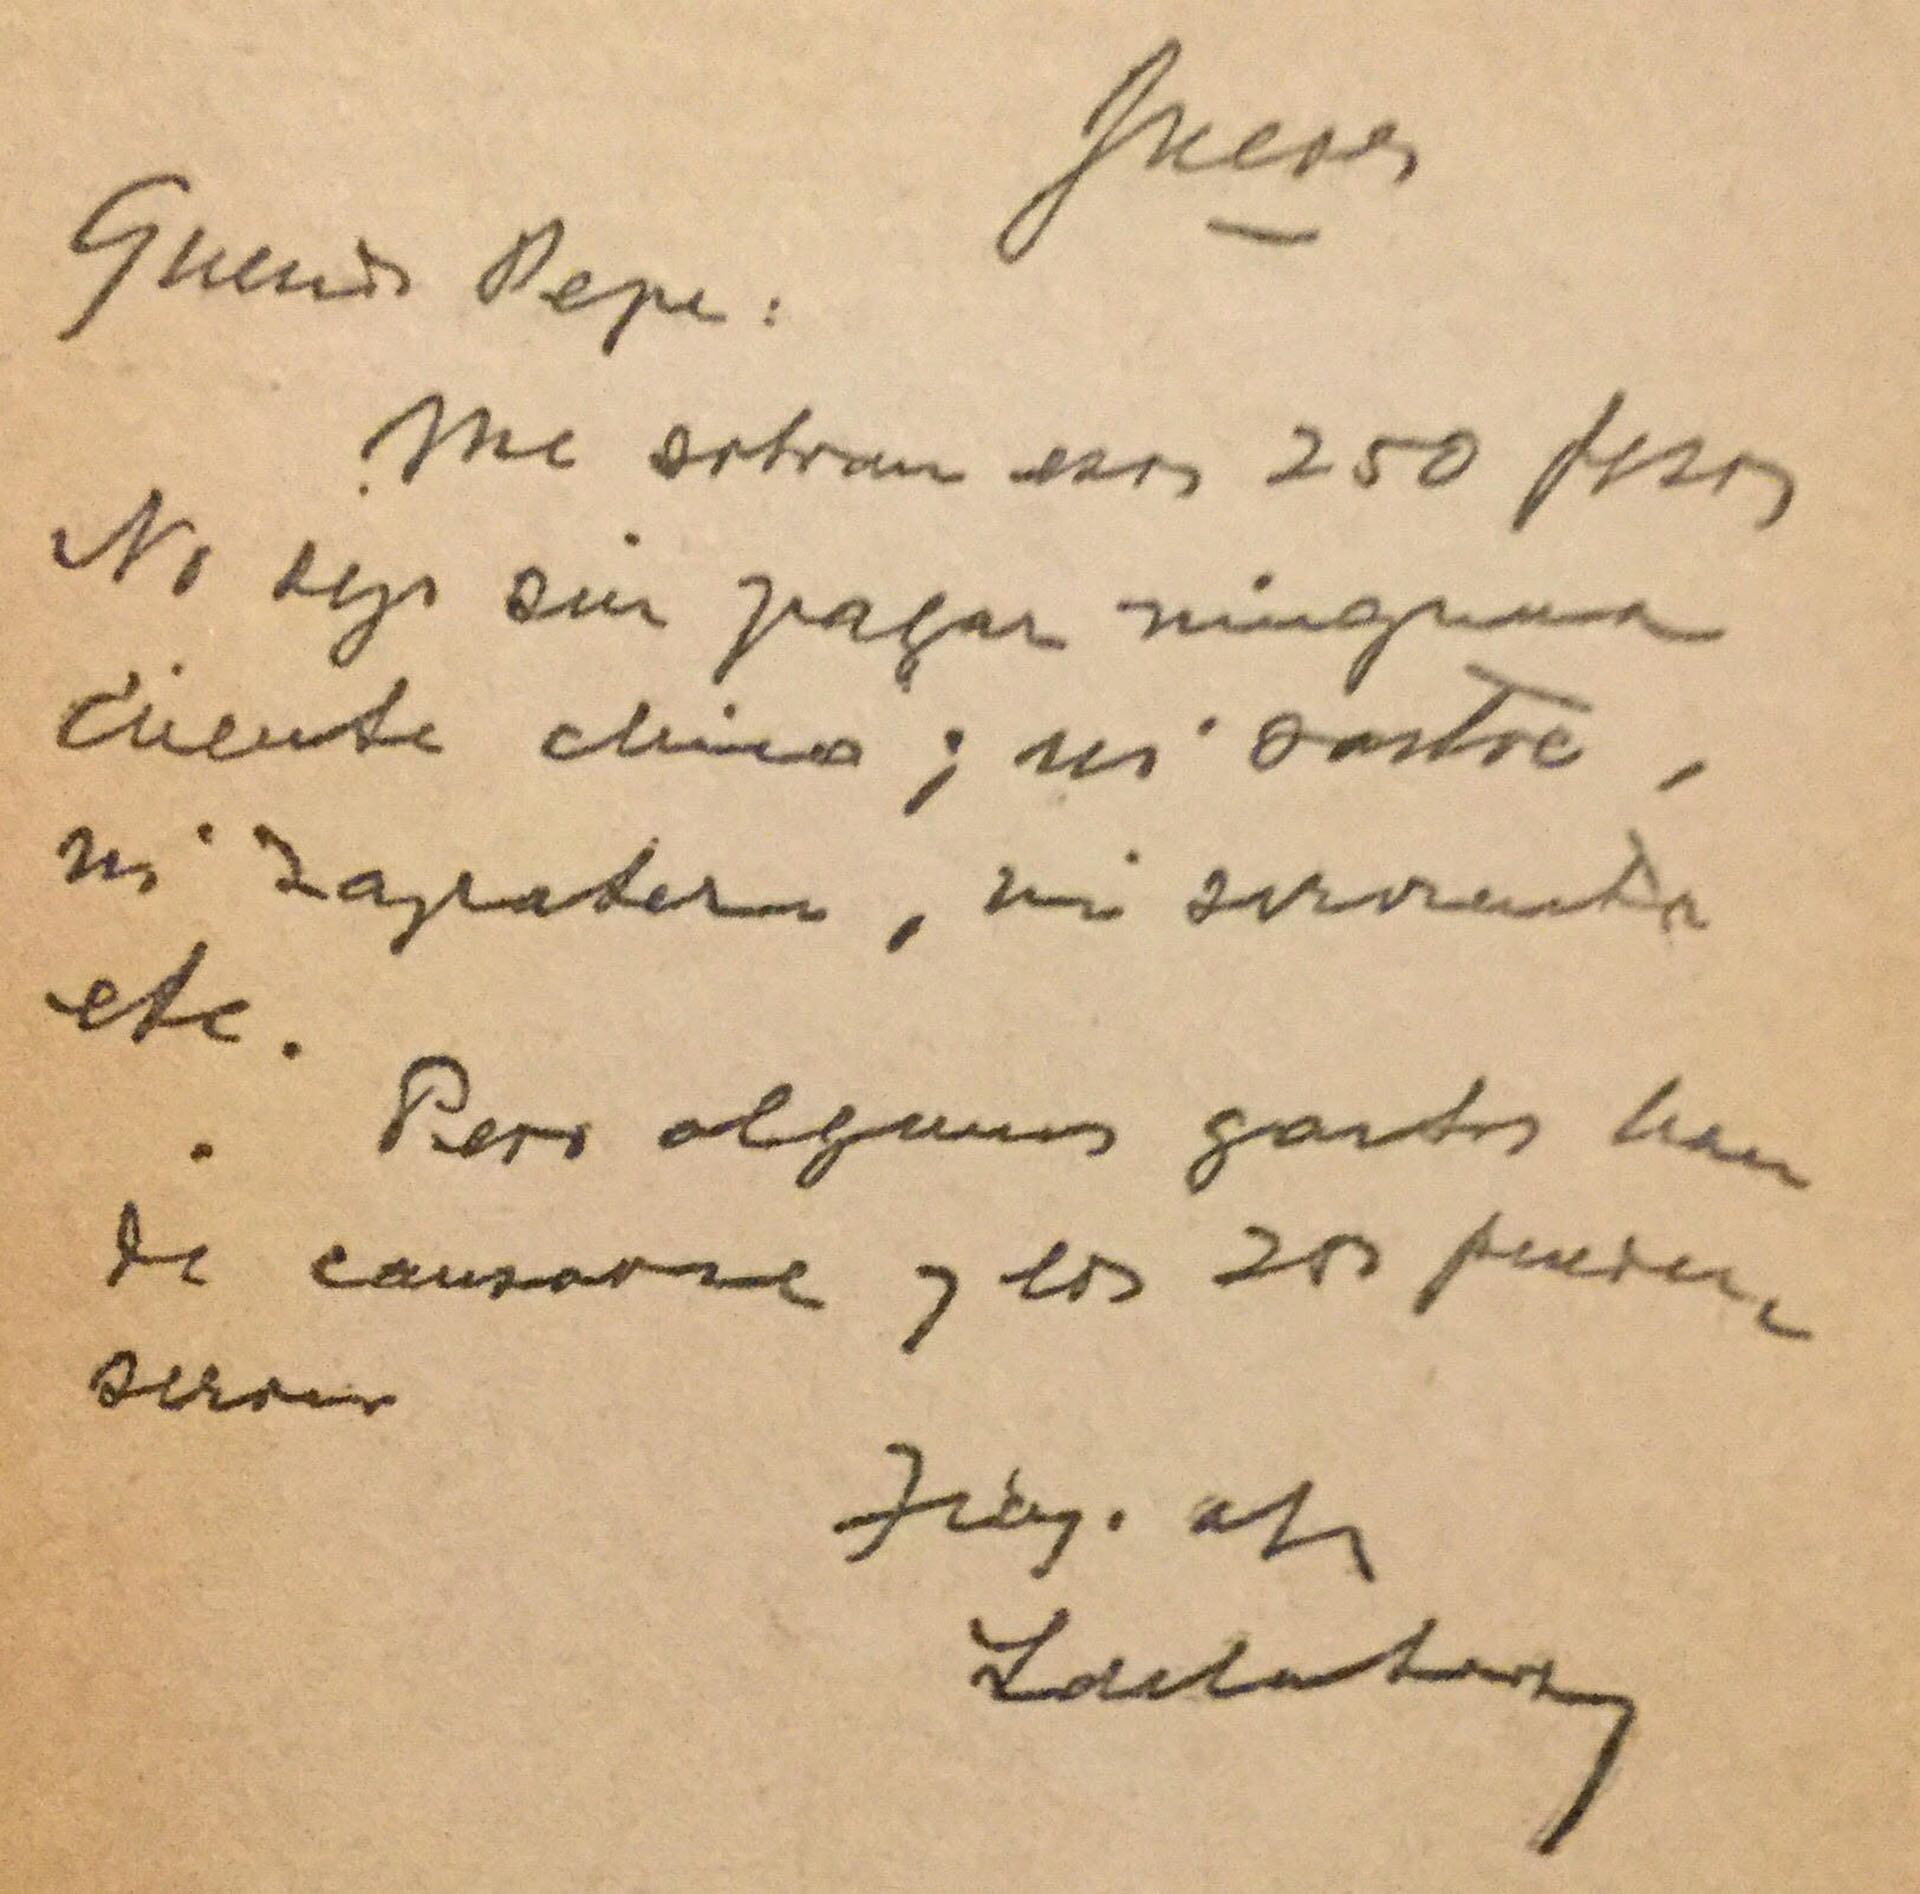 Jueves
Querido Pepe:
Me sobran esos 250 pesos
No dejo sin pagar ninguna
cuenta chica; ni sastre,
ni zapatero, ni sirvienta
etc.
Pero algunos gastos han
de causarse y los 200 pueden
servir